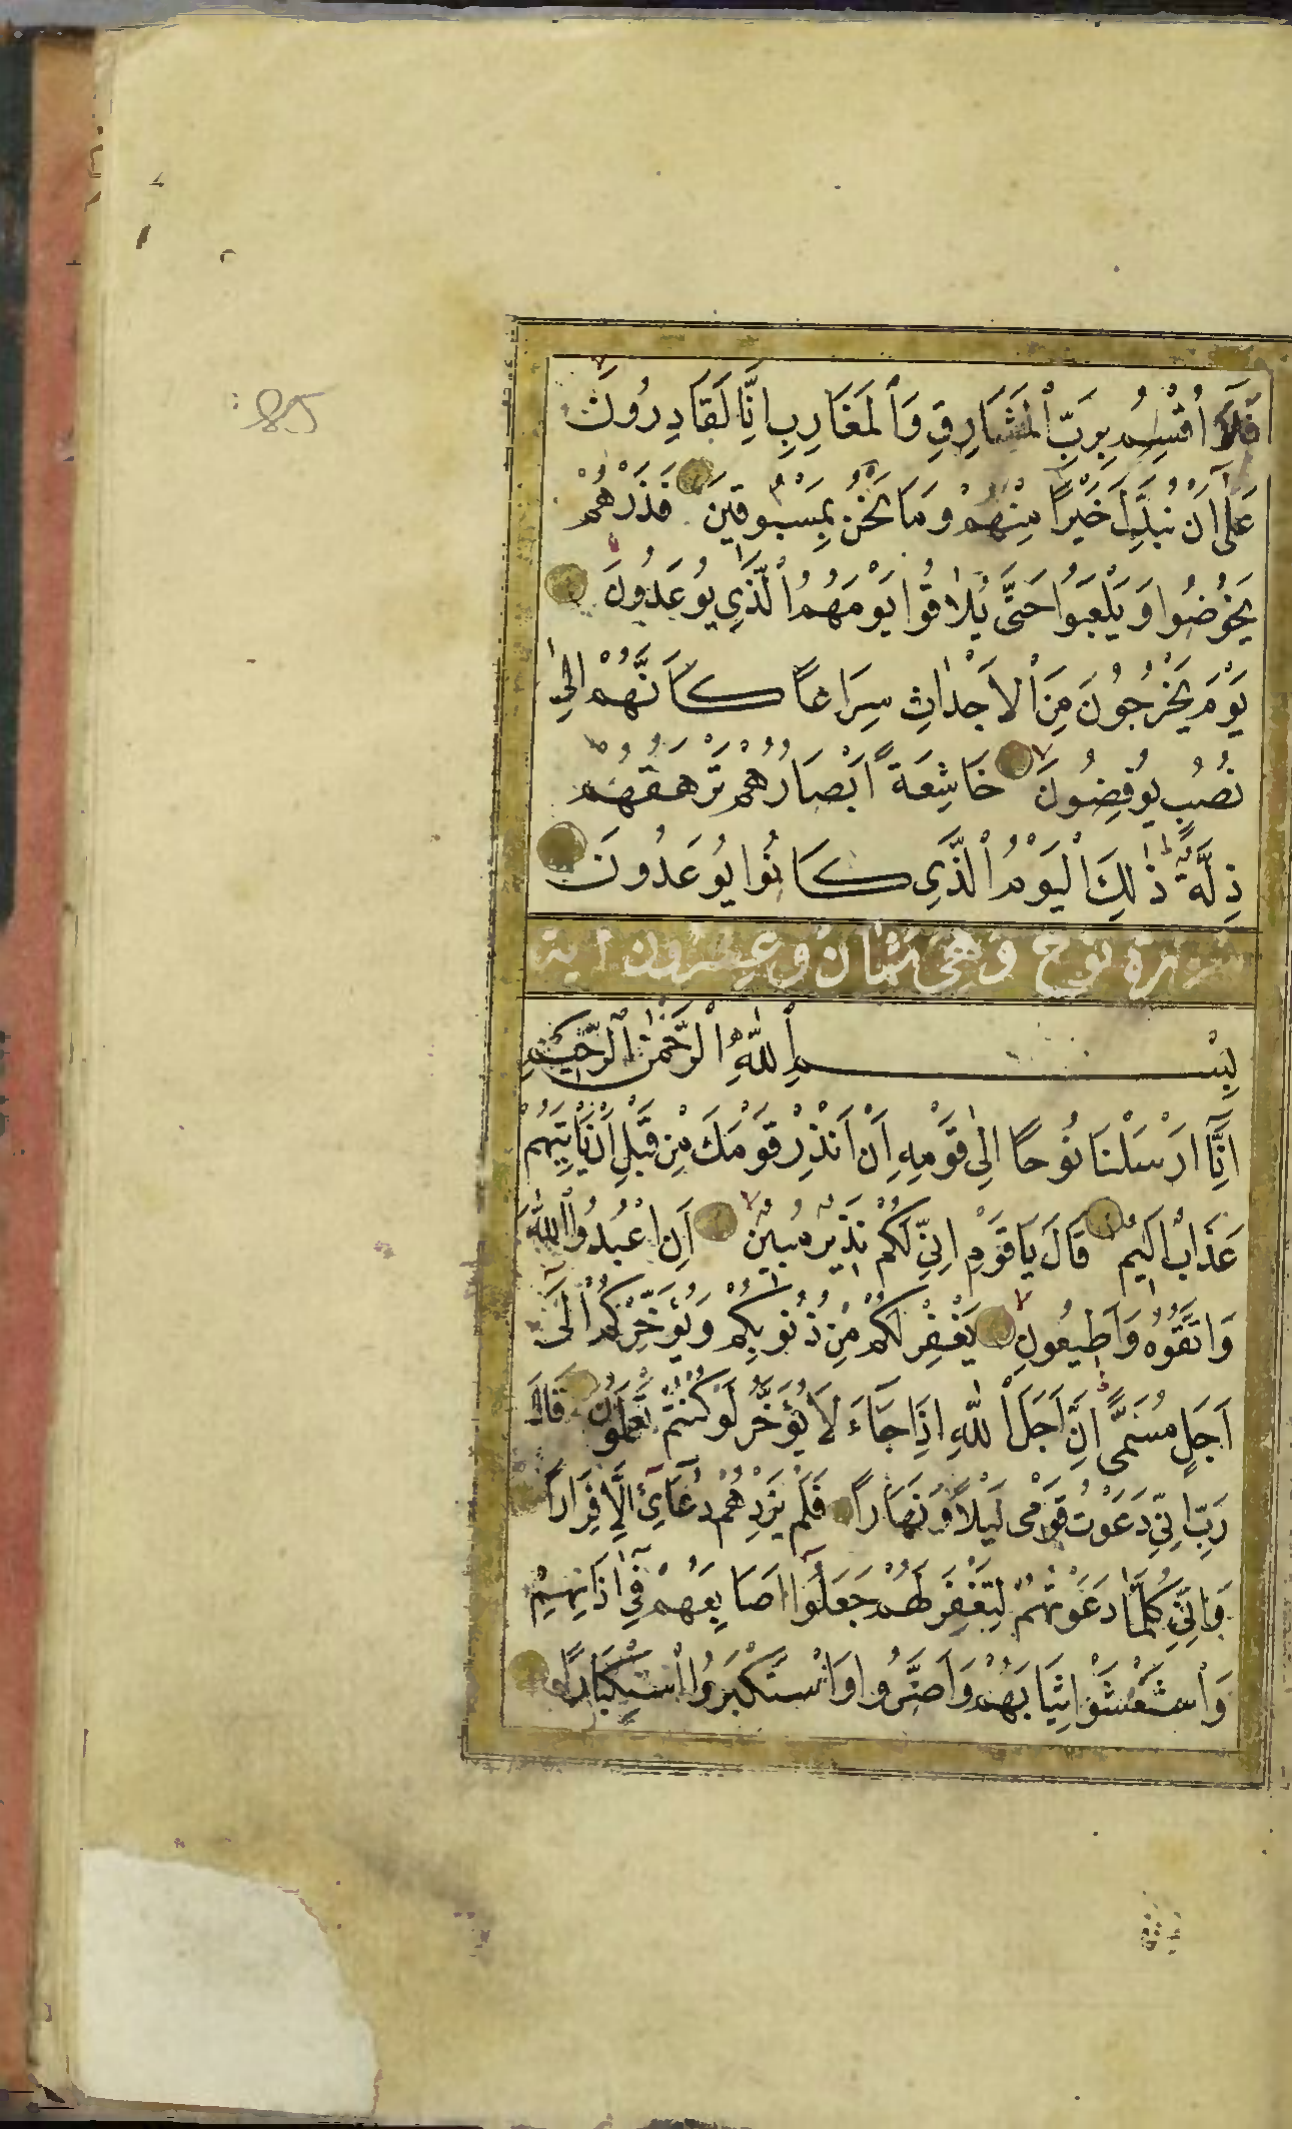 فَلَآ اُقْسِمُ بِرَبِّ الْمَشَارِقِ وَالْمَغَارِبِ اِنَّا لَقَادِرُونَ
عَلٰٓى اَنْ نُبَدِّلَ خَيْرًا مِنْهُمْ وَمَا نَحْنُ بِمَسْبُوقٖينَ فَذَرْهُمْ
يَخُوضُوا وَيَلْعَبُوا حَتّٰى يُلَاقُوا يَوْمَهُمُ الَّذٖي يُوعَدُونَ
يَوْمَ يَخْرُجُونَ مِنَ الْاَجْدَاثِ سِرَاعًا كَاَنَّهُمْ اِلٰى
نُصُبٍ يُوفِضُونَ خَاشِعَةً اَبْصَارُهُمْ تَرْهَقُهُمْ
ذِلَّةٌ ذٰلِكَ الْيَوْمُ الَّذٖي كَانُوا يُوعَدُونَ
سورة نوح وهى ثمان وعشرون اية
بِسْمِ اللّٰهِ الرَّحْمٰنِ الرَّحٖيمِ
اِنَّٓا اَرْسَلْنَا نُوحًا اِلٰى قَوْمِهٖ اَنْ اَنْذِرْ قَوْمَكَ مِنْ قَبْلِ اَنْ يَاْتِيَهُمْ
عَذَابٌ اَلٖيمٌ قَالَ يَا قَوْمِ اِنّٖي لَكُمْ نَذٖيرٌ مُبٖينٌ اَنِ اعْبُدُوا اللّٰهَ
وَاتَّقُوهُ وَاَطٖيعُونِ يَغْفِرْ لَكُمْ مِنْ ذُنُوبِكُمْ وَيُؤَخِّرْكُمْ اِلٰٓى
اَجَلٍ مُسَمًّى اِنَّ اَجَلَ اللّٰهِ اِذَا جَٓاءَ لَا يُؤَخَّرُ لَوْ كُنْتُمْ تَعْلَمُونَ قَالَ
رَبِّ اِنّٖي دَعَوْتُ قَوْمٖى لَيْلًا وَنَهَارًا فَلَمْ يَزِدْهُمْ دُعَٓائٖٓي اِلَّا فِرَارًا
وَاِنّٖي كُلَّمَا دَعَوْتُهُمْ لِتَغْفِرَ لَهُمْ جَعَلُٓوا اَصَابِعَهُمْ فٖٓي اٰذَانِهِمْ
وَاسْتَغْشَوْا ثِيَابَهُمْ وَاَصَرُّوا وَاسْتَكْبَرُوا اسْتِكْبَارًا